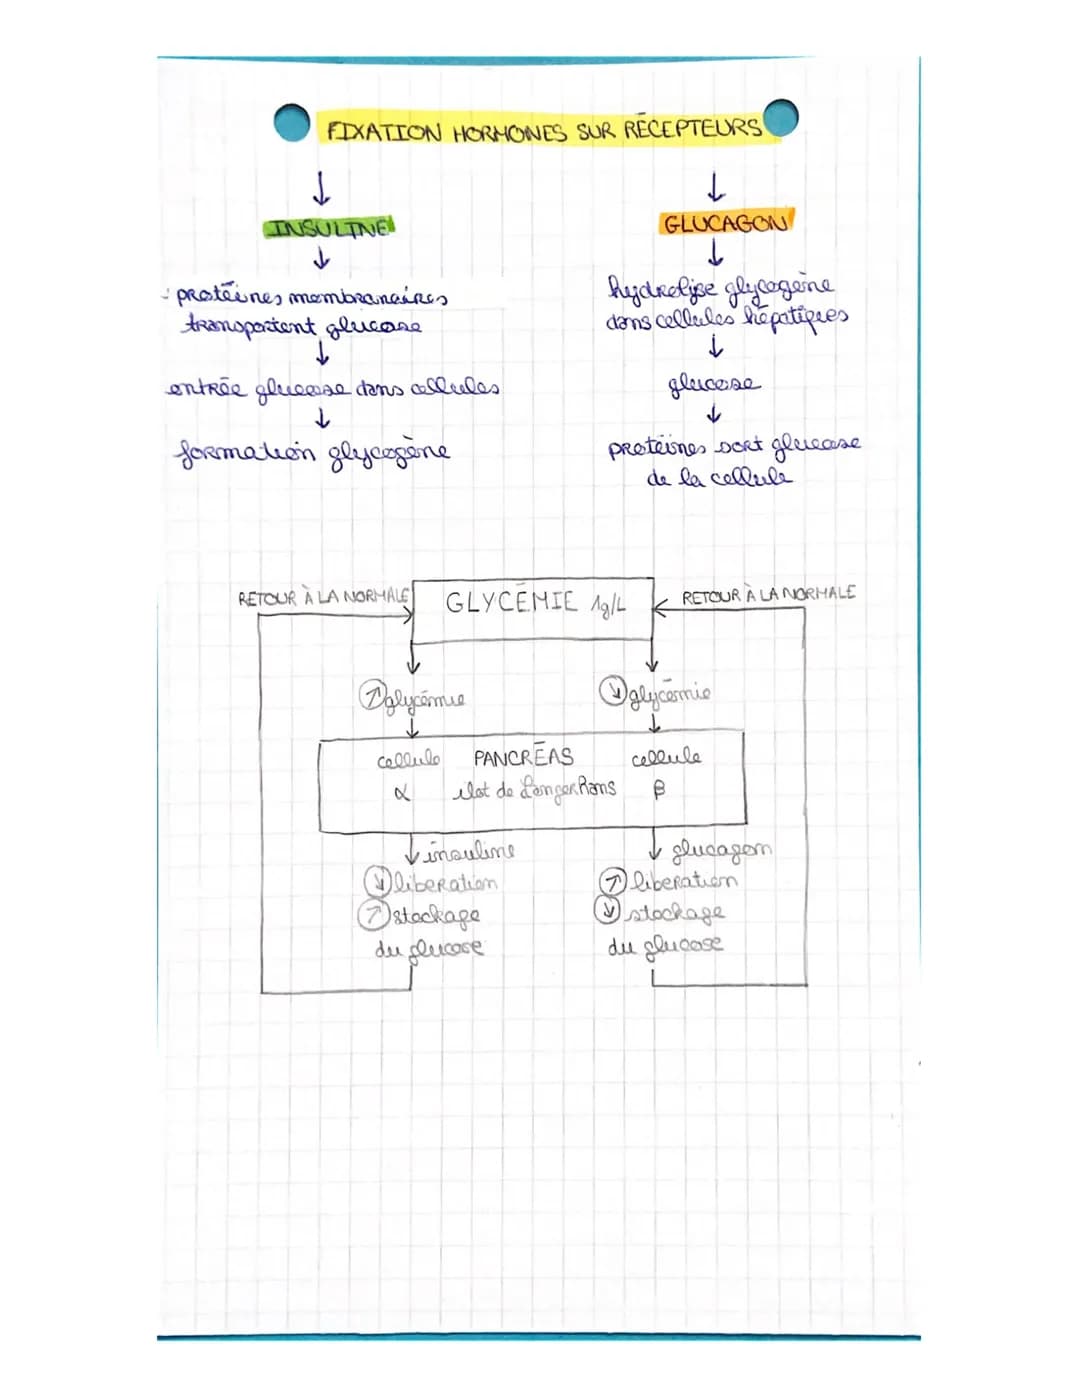 FIXATION HORMONES SUR RÉCEPTEURS
↓
INSULINE
↓
- protéines membranaires
transportent glucose
↓
entrée glucose dans cellules
↓
formation glycogène
↓
GLUCAGON
↓
hydrolyse glycogène
dans cellules hépatiques
↓
glucose
↓
protéines sort glucose
de la cellule
RETOUR À LA NORMALE
GLYCÉMIE 1g/L
RETOUR À LA NORMALE
↗ glycémie
↘ glycémie
cellule PANCRÉAS cellule
α ilot de Langerhans β
↓ insuline
↘ liberation
↗ stockage
du glucose
↓ glucagon
↗ liberation
↘ stockage
du glucose